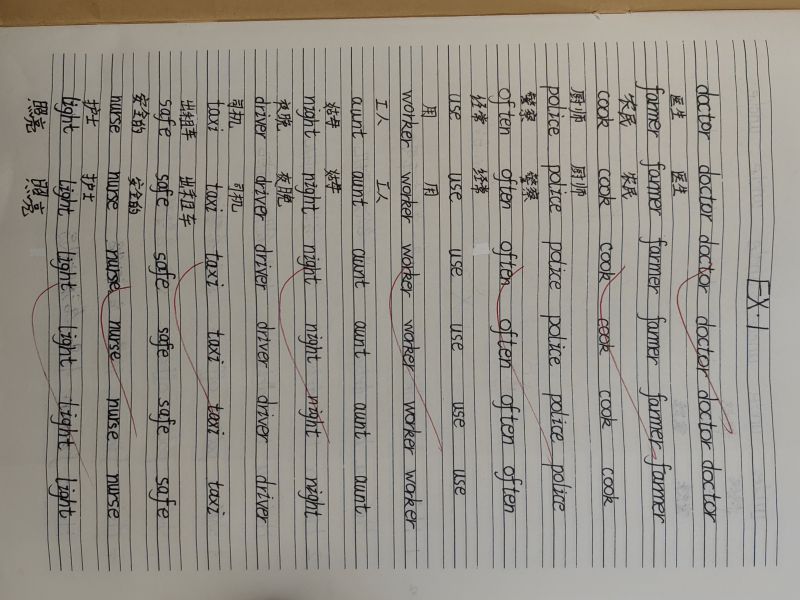 EX.1
doctor doctor doctor doctor doctor doctor
医生 医生
farmer farmer farmer farmer farmer farmer
农民 农民
cook cook cook cook cook cook
厨师 厨师
police police police police police police
警察 警察
often often often often often often
经常 经常
use use use use use use
用 用
worker worker worker worker worker worker
工人 工人
aunt aunt aunt aunt aunt aunt
姑母 姑母
night night night night night night
夜晚 夜晚
driver driver driver driver driver driver
司机 司机
taxi taxi taxi taxi taxi taxi
出租车 出租车
safe safe safe safe safe safe
安全的 安全的
nurse nurse nurse nurse nurse nurse
护士 护士
light light light light light light
照亮 照亮